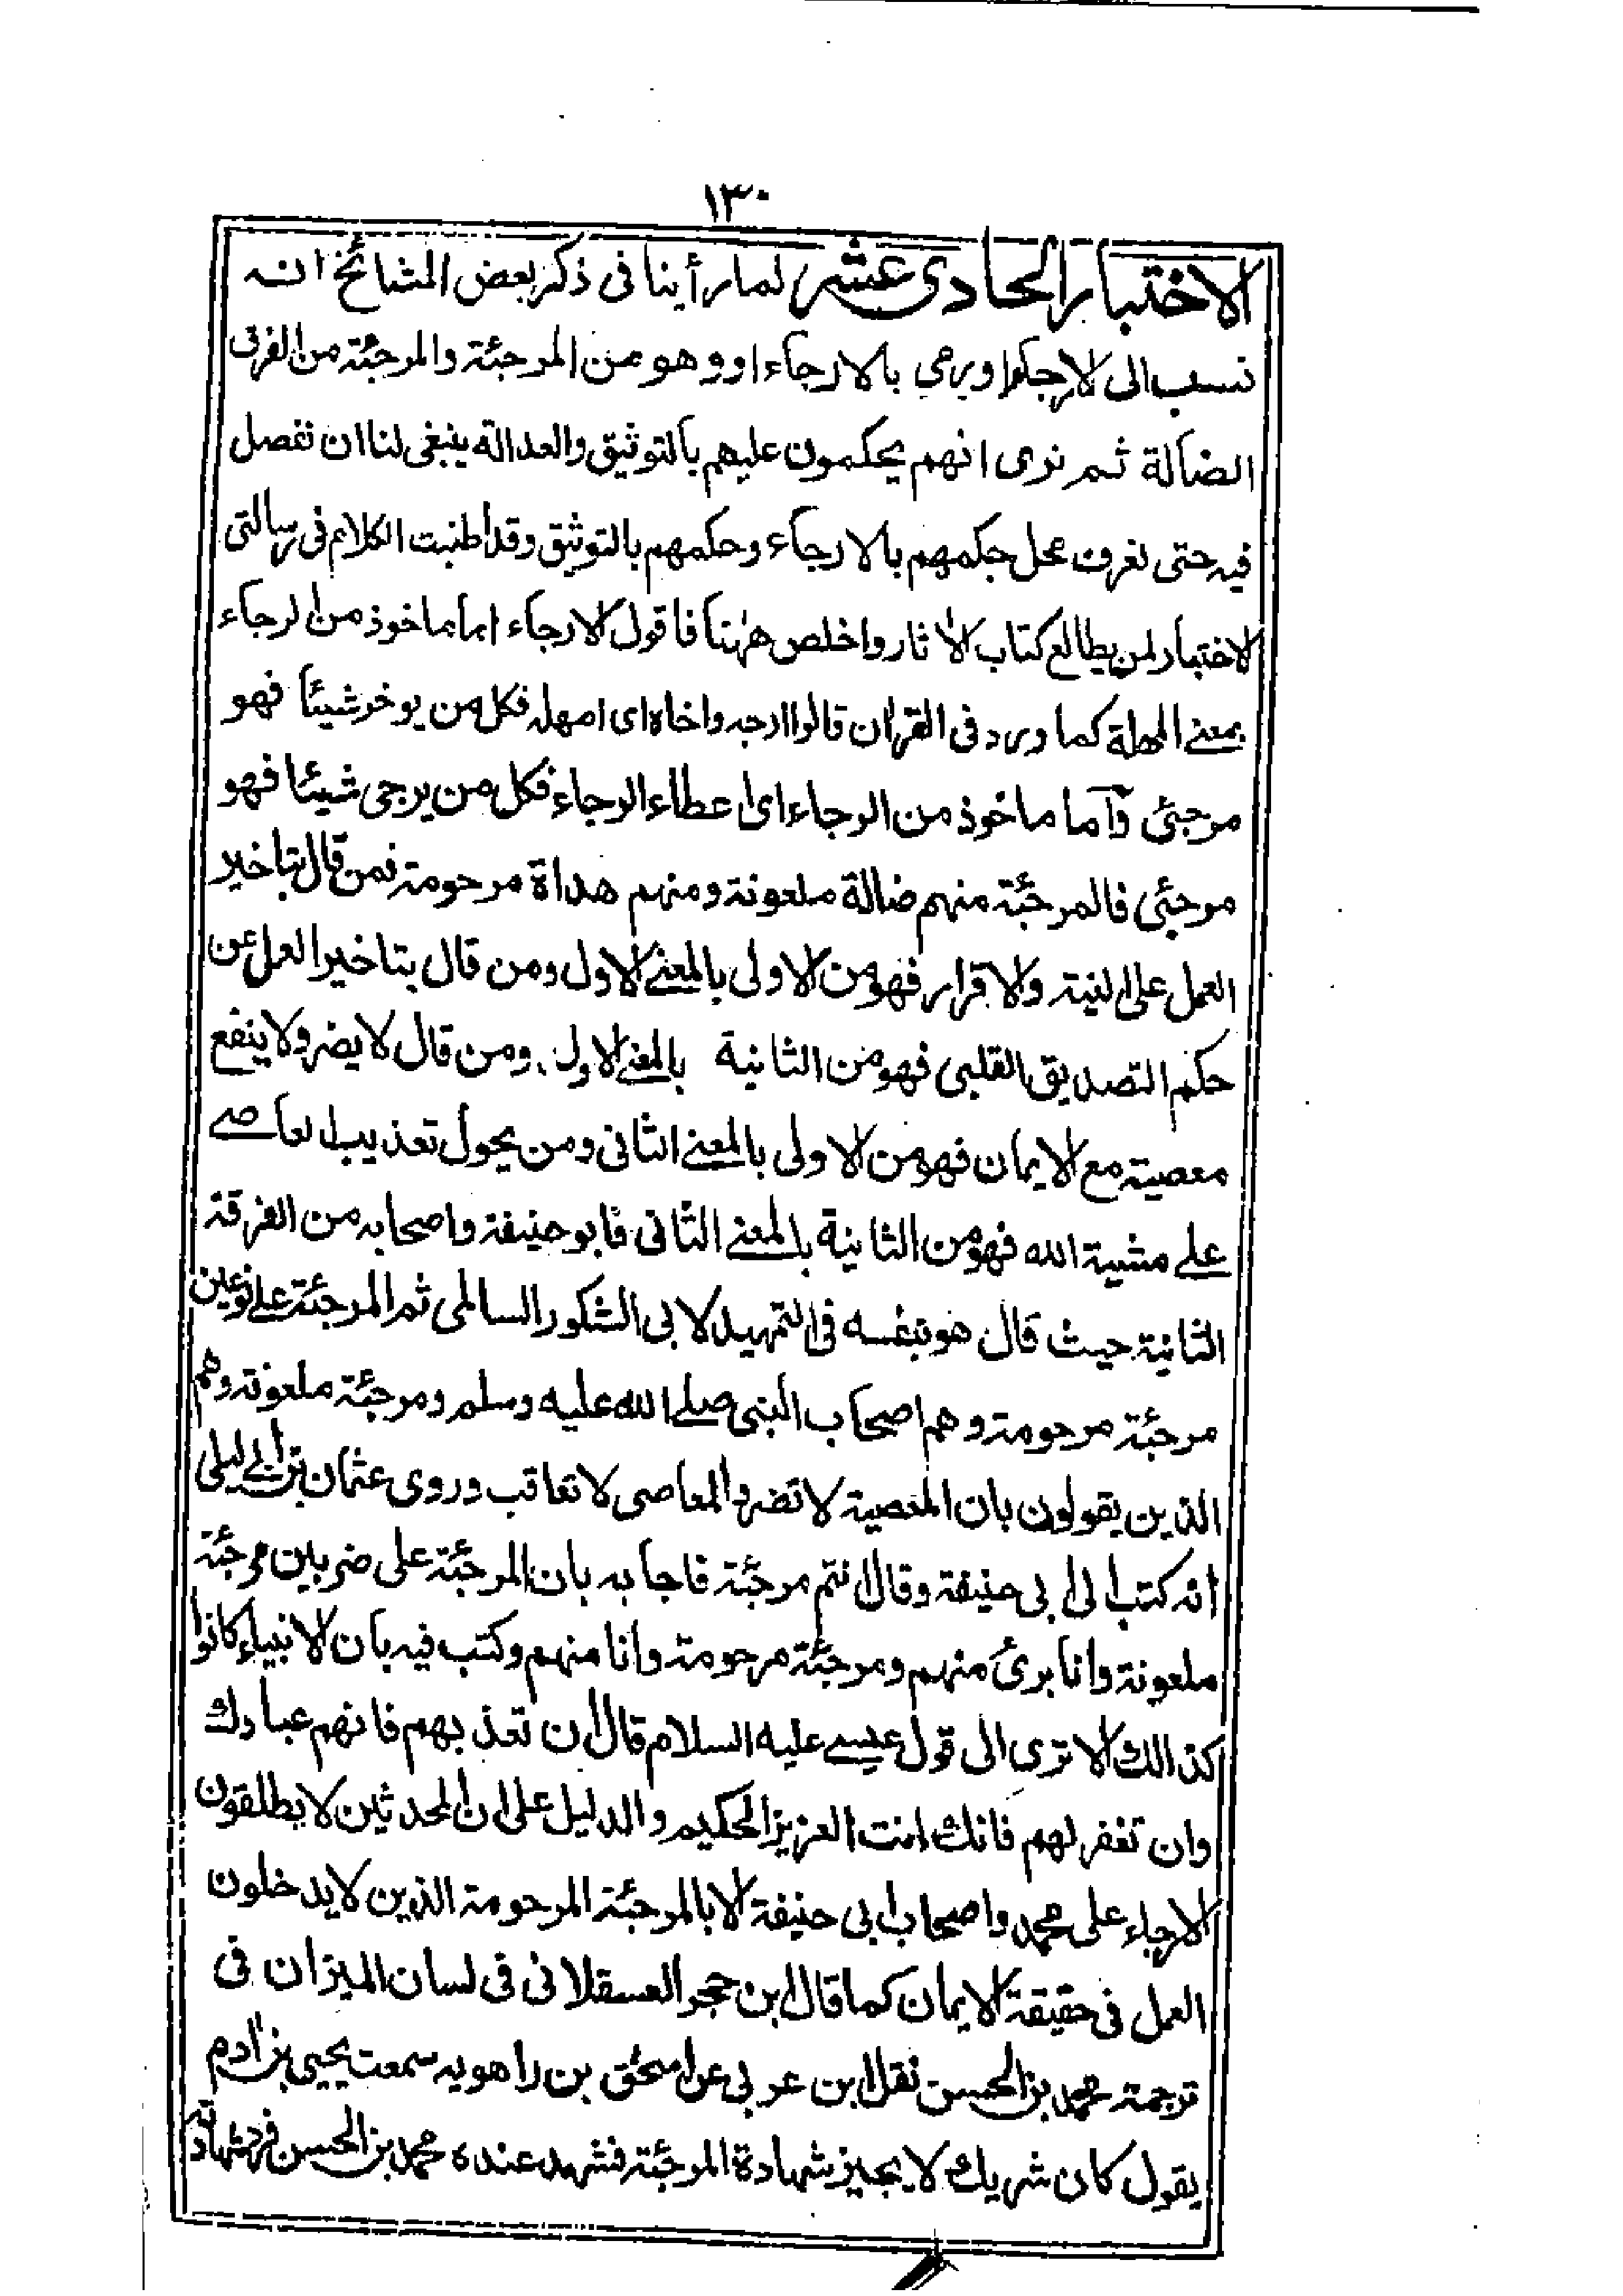 ١٣٠
الاختبار الحادی عشر لما رأينا فی ذکر بعض المشائخ انه
نسب الی الارجاء او یرمی بالارجاء او وهو من المرجئة والمرجئة من الفرق
الضالة ثم نری انهم یحکمون علیهم بالتوثیق والعدالة ینبغی لنا ان نفصل
فیه حتی نعرف محل حکمهم بالارجاء وحکمهم بالتوثیق وقد اطنبت الکلام فی رسالتی
الاختبار لمن یطالع کتاب الاثار واخلص ههنا فاقول الارجاء اما ماخوذ من الرجاء
بمعنے المهلة کما ورد فی القران قالوا ارجه واخاه ای امهله فکل من یوخر شیئا فهو
مرجئی وآما ماخوذ من الرجاء ای اعطاء الرجاء فکل من یرجی شیئا فهو
مرجئی فالمرجئة منهم ضالة ملعونة ومنهم هداة مرحومة فمن قال بتاخیر
العمل علی النیة والاقرار فهو من الاولی بالمعنے الاول ومن قال بتاخیر العمل عن
حکم التصدیق القلبی فهو من الثانیة بالمعنے الاول ومن قال لا یضر ولا ینفع
معصیة مع الایمان فهو من الاولی بالمعنے الثانی ومن یحول تعذیب العاصے
علے مشیة الله فهو من الثانیة بالمعنے الثانی فابو حنیفة واصحابه من الفرقة
الثانیة حیث قال هو بنفسه فی التمهید لابی الشکور السالمی ثم المرجئة علے نوعین
مرجئة مرحومة وهم اصحاب النبی صلے الله علیه وسلم ومرجئة ملعونة وهم
الذین یقولون بان المعصیة لا تضر والمعاصی لا تعاقب وروی عثمان بن ابے لیلی
انه کتب الی ابی حنیفة وقال انتم مرجئة فاجابه بان المرجئة علی ضربین مرجئة
ملعونة وانا برئ منهم ومرجئة مرحومة وانا منهم وکتب فیه بان الانبیاء کانوا
کذالك الا تری الی قول عیسے علیه السلام قال ان تعذبهم فانهم عبادك
وان تغفر لهم فانك انت العزیز الحکیم والدلیل علی ان المحدثین لا یطلقون
الارجاء علی محمد واصحاب ابی حنیفة الا بالمرجئة المرحومة الذین لا یدخلون
العمل فی حقیقة الایمان کما قال ابن حجر العسقلانی فی لسان المیزان فی
ترجمة محمد بن الحسن نقل ابن عربی عن اسحٰق بن راهویه سمعت یحیی بن ادم
یقول کان شریك لا یجیز شهادة المرجئة فشهد عنده محمد بن الحسن فرد شهادته